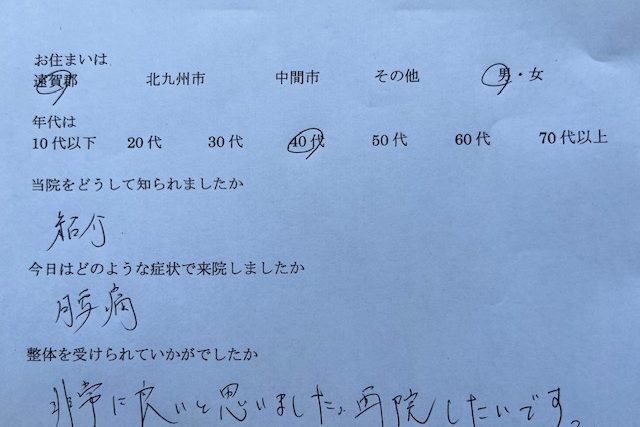 お住まいは
遠賀郡 北九州市 中間市 その他 男・女
年代は
10代以下 20代 30代 40代 50代 60代 70代以上
当院をどうして知られましたか
紹介
今日はどのような症状で来院しましたか
腰痛
整体を受けられていかがでしたか
非常に良いと思いました。再院したいです。